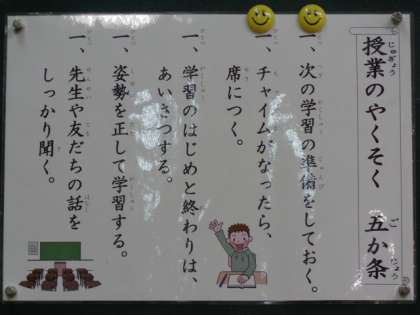 授業のやくそく 五か条
一、次の学習の準備をしておく。
一、チャイムがなったら、
席につく。
一、学習のはじめと終わりは、
あいさつする。
一、姿勢を正して学習する。
一、先生や友だちの話を
しっかり聞く。